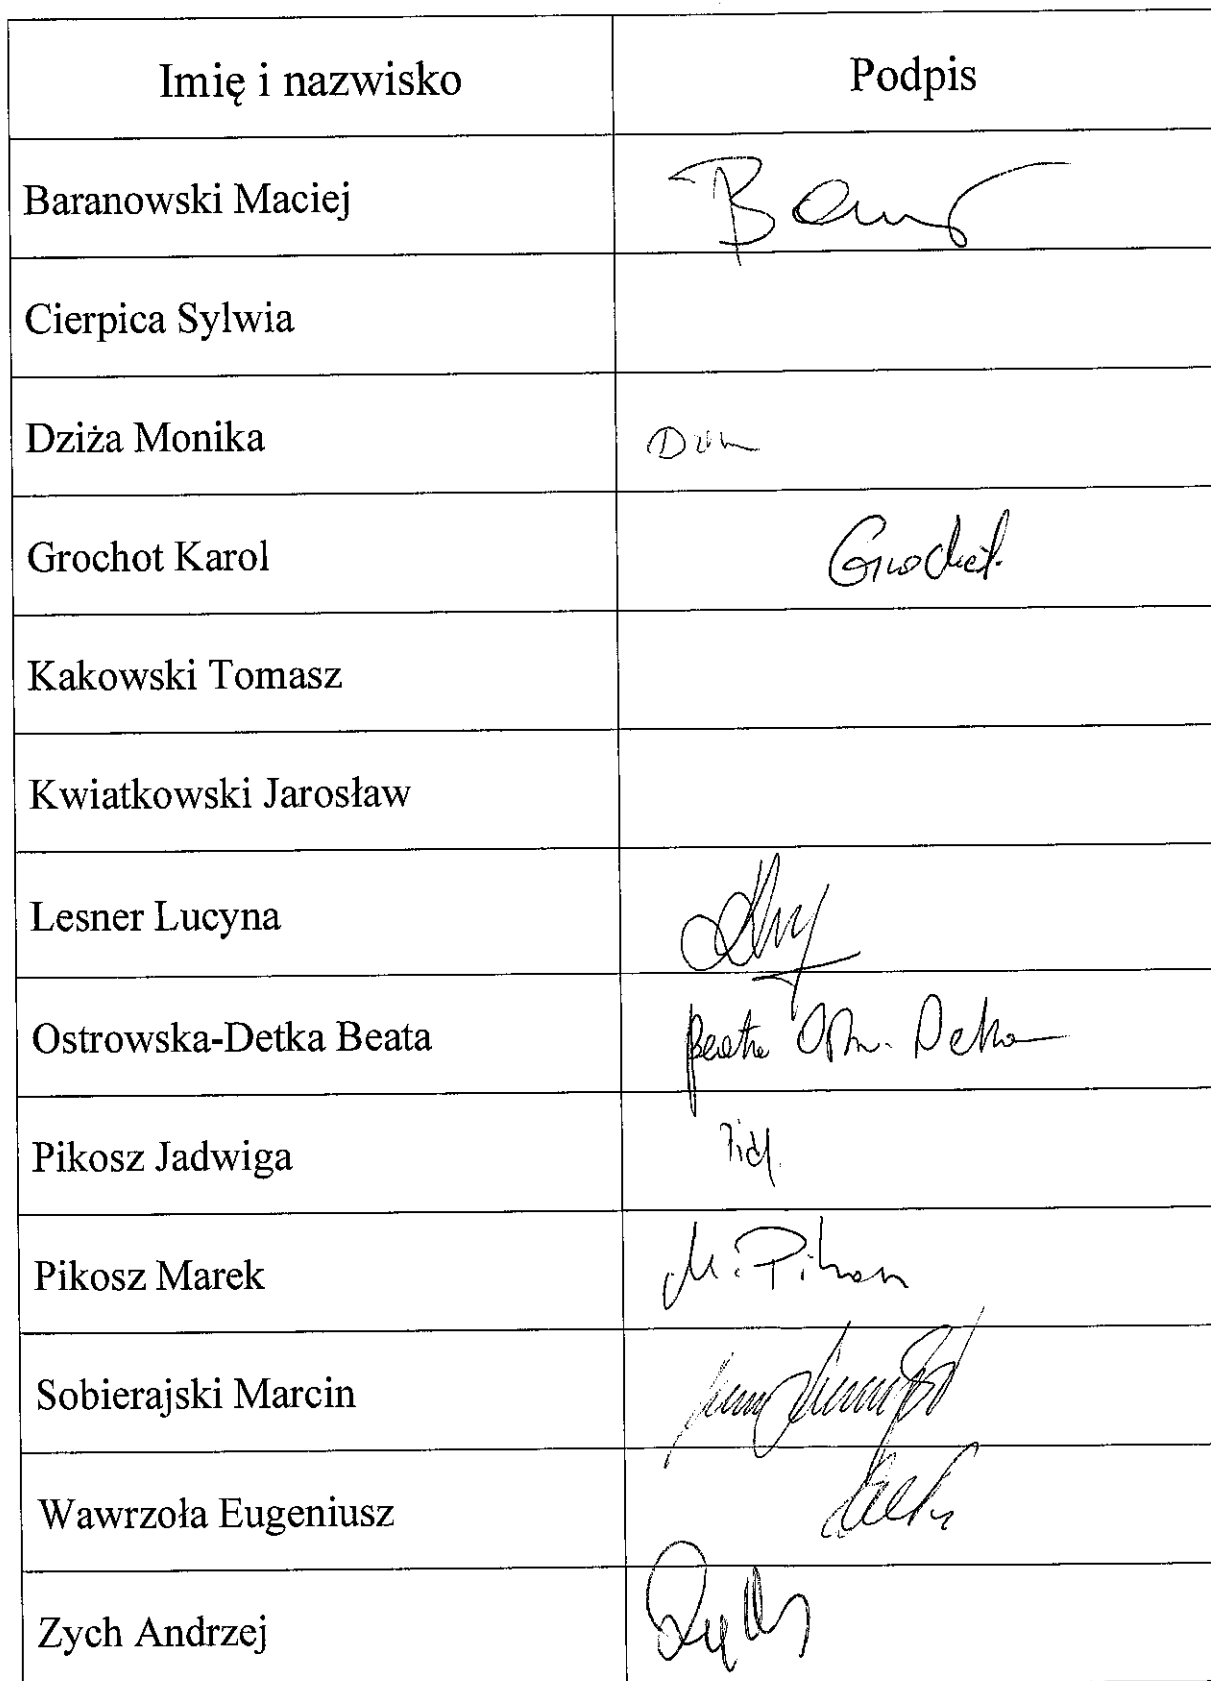 Imię i nazwisko Podpis
Baranowski Maciej
Cierpica Sylwia
Dziża Monika
Grochot Karol Grochot.
Kakowski Tomasz
Kwiatkowski Jarosław
Lesner Lucyna
Ostrowska-Detka Beata Beata Detka
Pikosz Jadwiga
Pikosz Marek M. Pikosz
Sobierajski Marcin
Wawrzoła Eugeniusz
Zych Andrzej